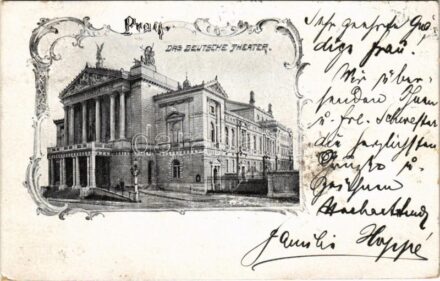 Prag.
DAS DEUTSCHE THEATER.
Sehr geehrte Gnä-
dige Frau!
Wir über-
senden Ihnen
u. frl. Schwester
die herzlichsten
Grüsse u.
zeichnen
Hochachtend
Familie Hoppé